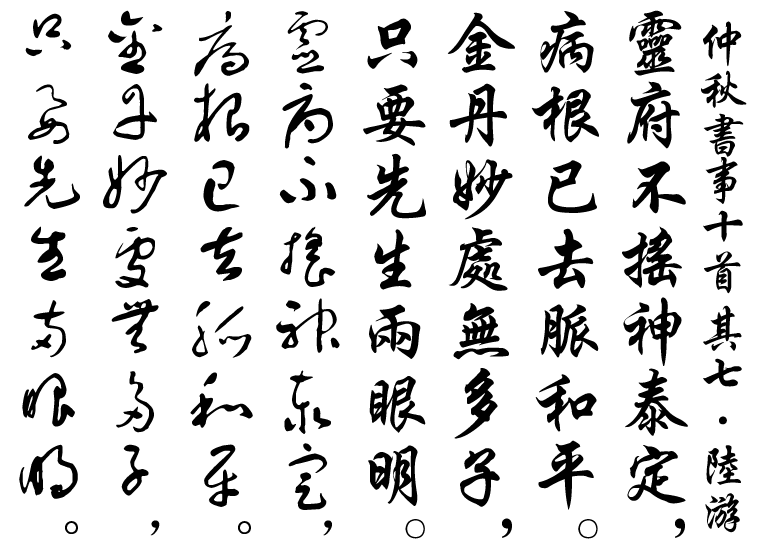 仲秋書事十首其七·陸游
靈府不搖神泰定，
病根已去脈和平。
金丹妙處無多子，
只要先生兩眼明。
靈府不搖神泰定，
病根已去脈和平。
金丹妙處無多子，
只要先生兩眼明。